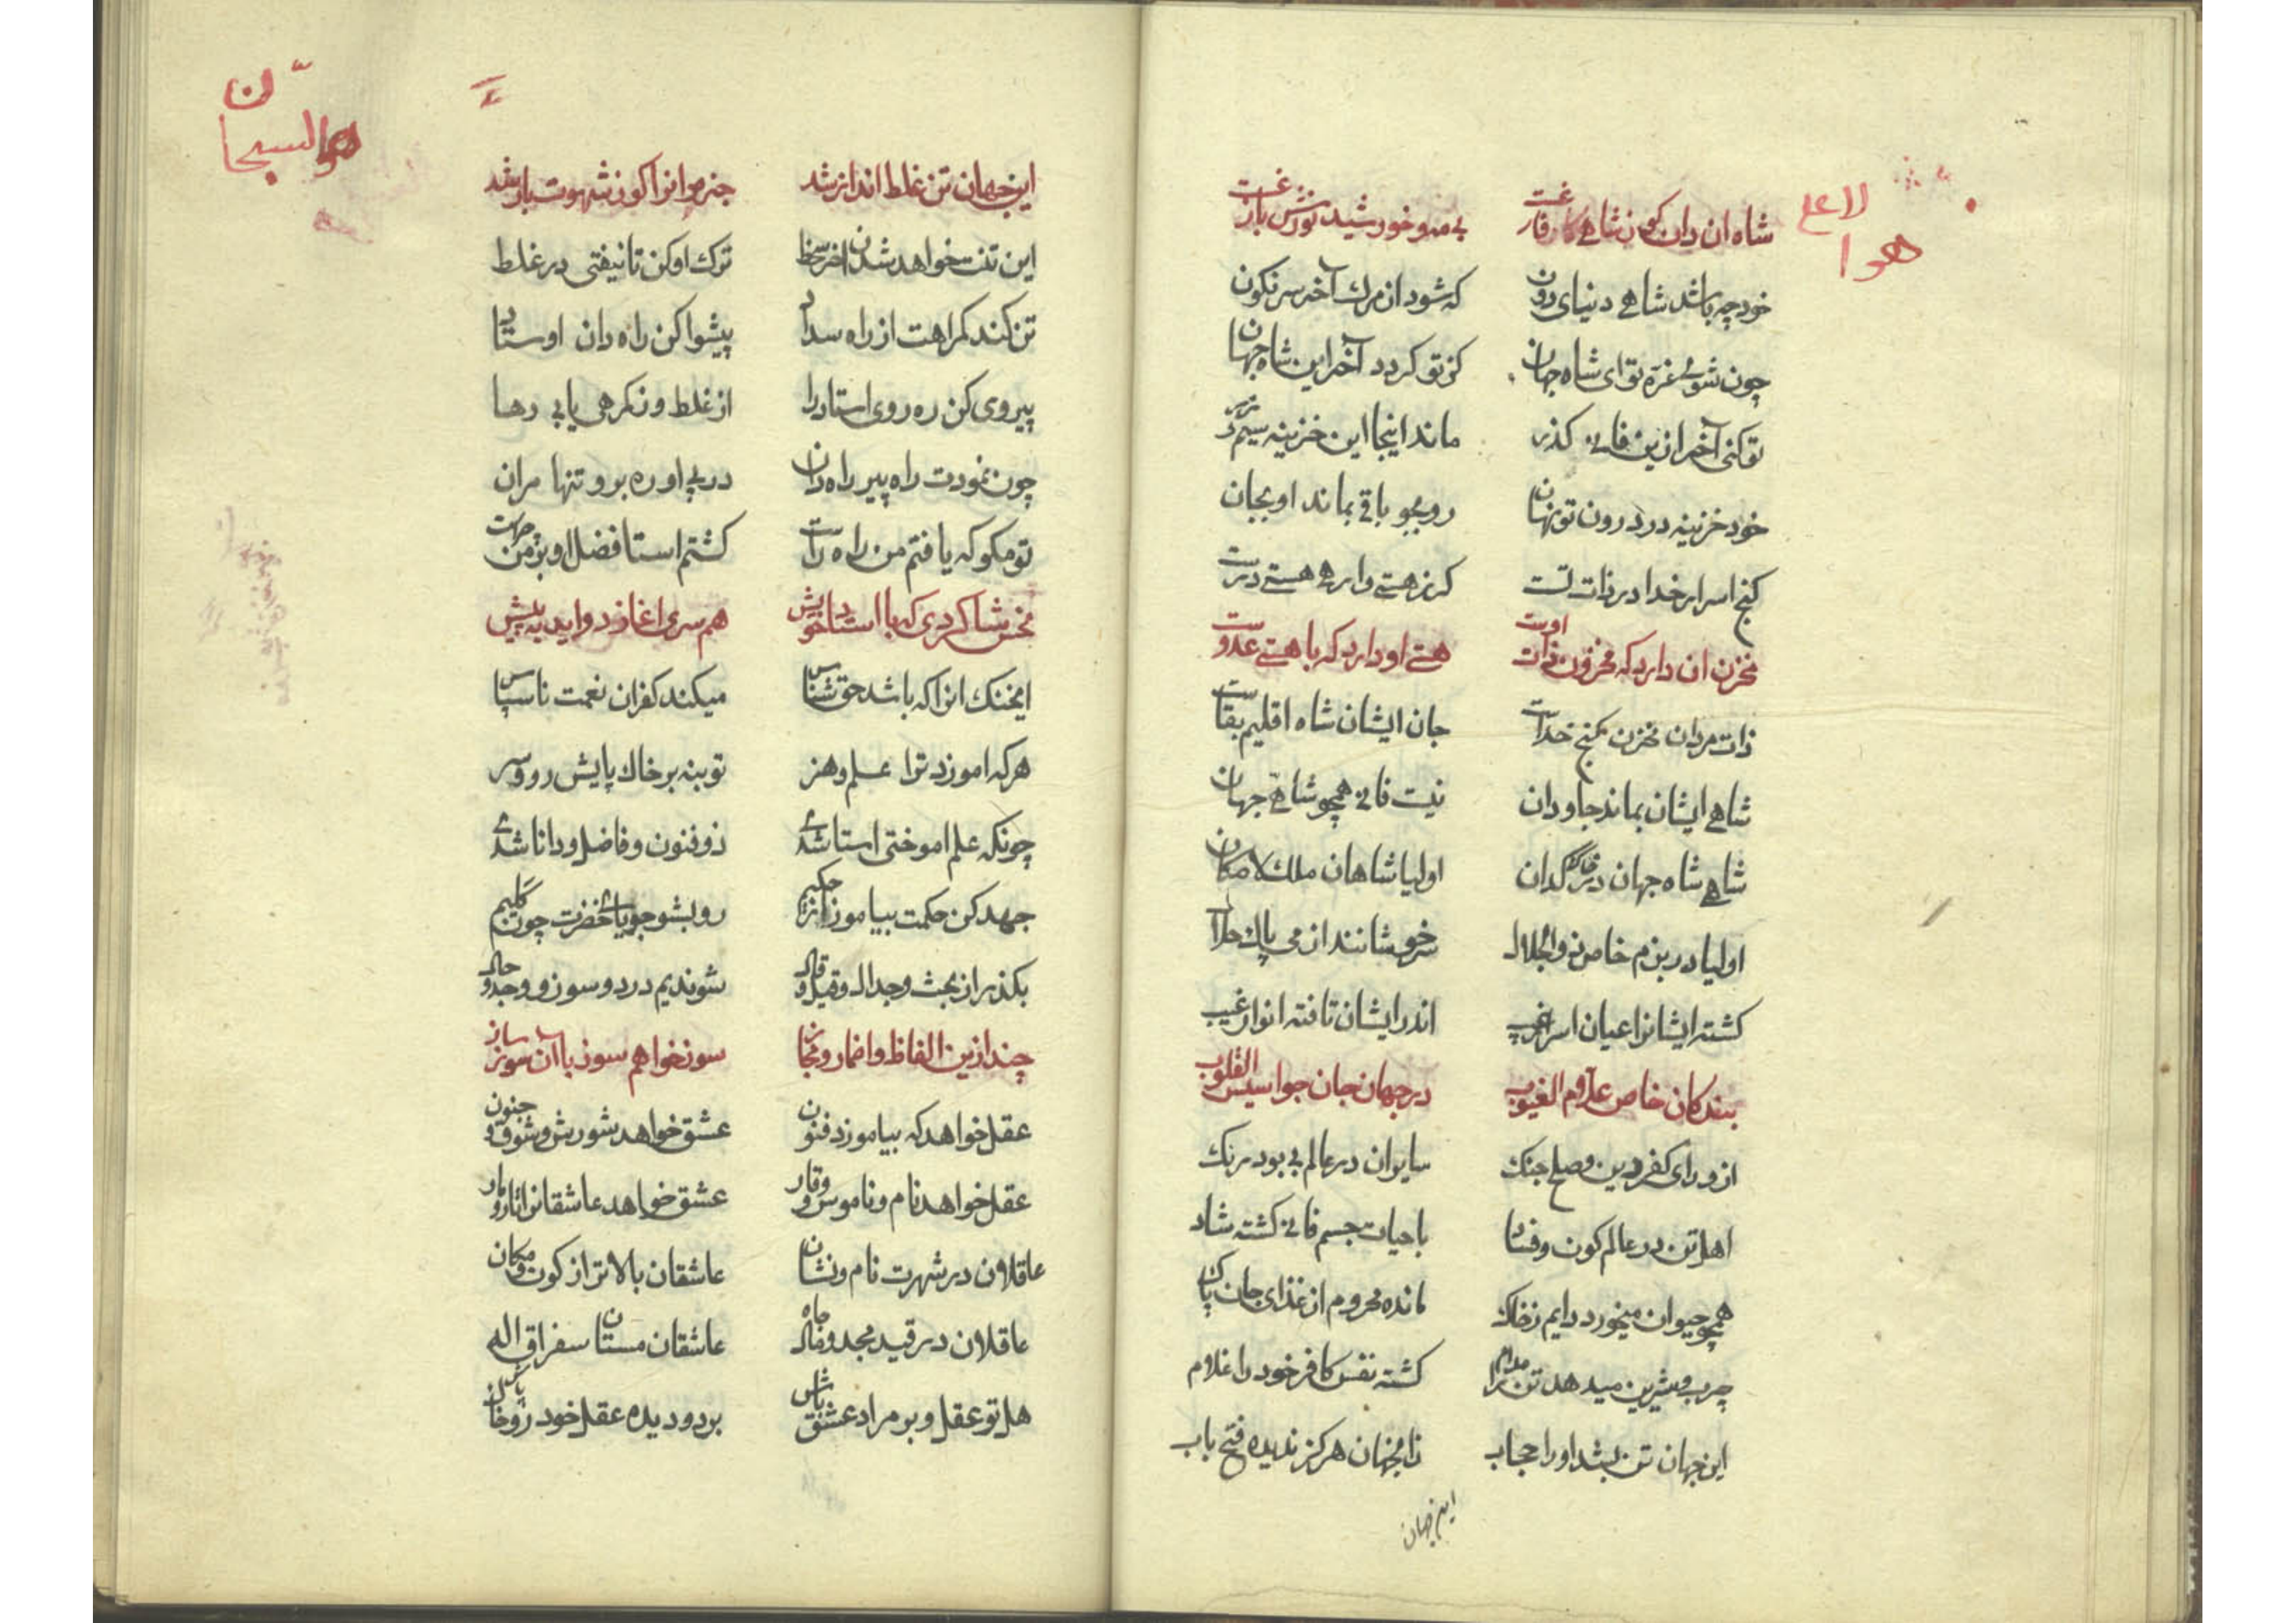 هوالاعلی
شاه ان دان کو ز شاهی فارغست بی مه و خورشید نورش بازغست
خود چه باشد شاهی دنیای دون که شود از مرک آخر سرنکون
چون شوی غره تو ای شاه جهان کز تو کردد آخر این شاه جهان
تو کنی آخر ازین فانی کذر ماند اینجا این خزینه سیم زر
خود خزینه در درون تو نهان رو بجو باقی بماند او بجان
کنج اسرار خدا در ذات تست کر ز هستی وارهی هستی درست
مخزن ان دارد که مخزون ذات اوست هستی او دارد که با هستی عدوست
ذات مردان مخزن کنج خداست جان ایشان شاه اقلیم بقاست
شاهی ایشان بماند جاودان نیست فانی همچو شاهی جهان
شاهی شاه جهان کذران اولیا شاهان ملک لامکان
اولیا در بزم خاص ذوالجلال سرخوشانند از می پاک حلال
کشته ایشانرا عیان اسرار غیب اندر ایشان تافته انوار غیب
بندکان خاص علام الغیوب در جهان جان جواسیس القلوب
از ورای کفر دین و صلح جنک سایران در عالم بی بود رنک
اهل تن در عالم کون و فساد با حیات جسم فانی کشته شاد
همچو حیوان میخورد دایم ز خاک مانده محروم از غذای جان پاک
چرب و شیرین میدهد تن را مدام کشته نفس کافر خود را غلام
این جهان تن بشد او را حجاب زانجهان هرکز ندیده فتح باب
این جهان
هوالسبحان
این جهان تن غلط انداز شد جز مر انرا کو ز شهوت باز شد
این تنت خواهد شدن آخر سخط ترک او کن تا نیفتی در غلط
تن کند کمراهت از راه سداد پیشوا کن راه دان اوستاد
پیروی کن ره روی استاد را از غلط وز کمرهی یابی رها
چون نمودت راه پیر راه دان در پی او ره برو تنها مران
تو مکو که یافتم من راه راست کشتم استا فضل او بر من چراست
نحس شاکردی که با استاد خویش همسری اغازد و اید به پیش
ایخنک انرا که باشد حق شناس میکند کفران نعمت ناسپاس
هر که اموزد ترا علم و هنر تو بنه بر خاک پایش رو و سر
چونکه علم اموختی استا شدی ذوفنون و فاضل و دانا شدی
جهد کن حکمت بیاموز از حکیم رو بشو جویای خضرت چون کلیم
بکذر از بحث و جدال و قیل و قال شو ندیم درد و سوز و وجد و حال
چند ازین الفاظ و اضمار و مجاز سوز خواهم سوز با آن سوز ساز
عقل خواهد که بیاموزد فنون عشق خواهد شورش و شوق و جنون
عقل خواهد نام و ناموس و وقار عشق خواهد عاشقانرا تار و مار
عاقلان در شهرت نام و نشان عاشقان بالاتر از کون و مکان
عاقلان در قید مجد و مال جاه عاشقان مستان سغراق اله
هل تو عقل و بر مراد عشق باش بر دو دیده عقل خود رو خاک پاش